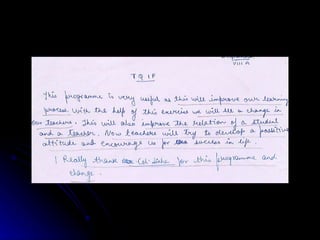 VIII A
T Q I P
This programme is very useful as this will improve our learning
process. With the help of this exercise we will see a change in
our teachers. This will also improve the relation of a student
and a teacher. Now teachers will try to develop a positive
attitude and encourage us for success in life.
I Really thank Col. for this programme and
change.